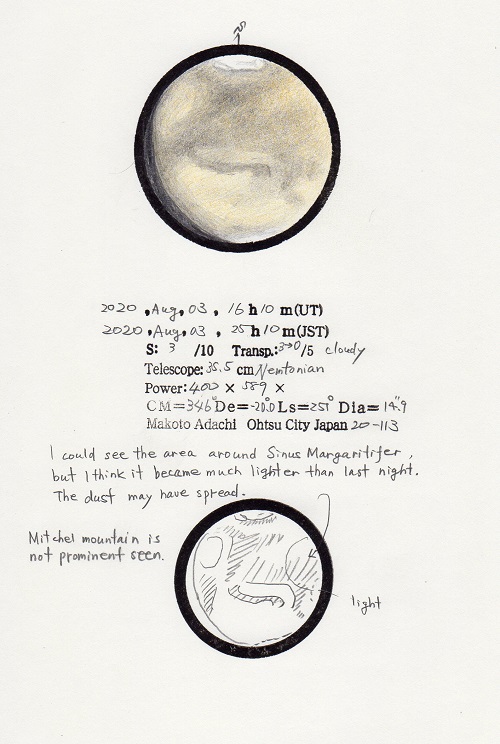 2020, Aug, 03, 16 h 10 m(UT)
2020, Aug, 03, 25 h 10 m(JST)
S: 3 /10 Transp.: 3→0/5 cloudy
Telescope: 35.5 cm Newtonian
Power: 400 × 589 ×
CM=346° De=-20.0 Ls=251° Dia=14".9
Makoto Adachi Ohtsu City Japan 20-113
I could see the area around Sinus Margaritifer,
but I think it became much lighter than last night.
The dust may have spread.
Mitchel mountain is
not prominent seen.
light